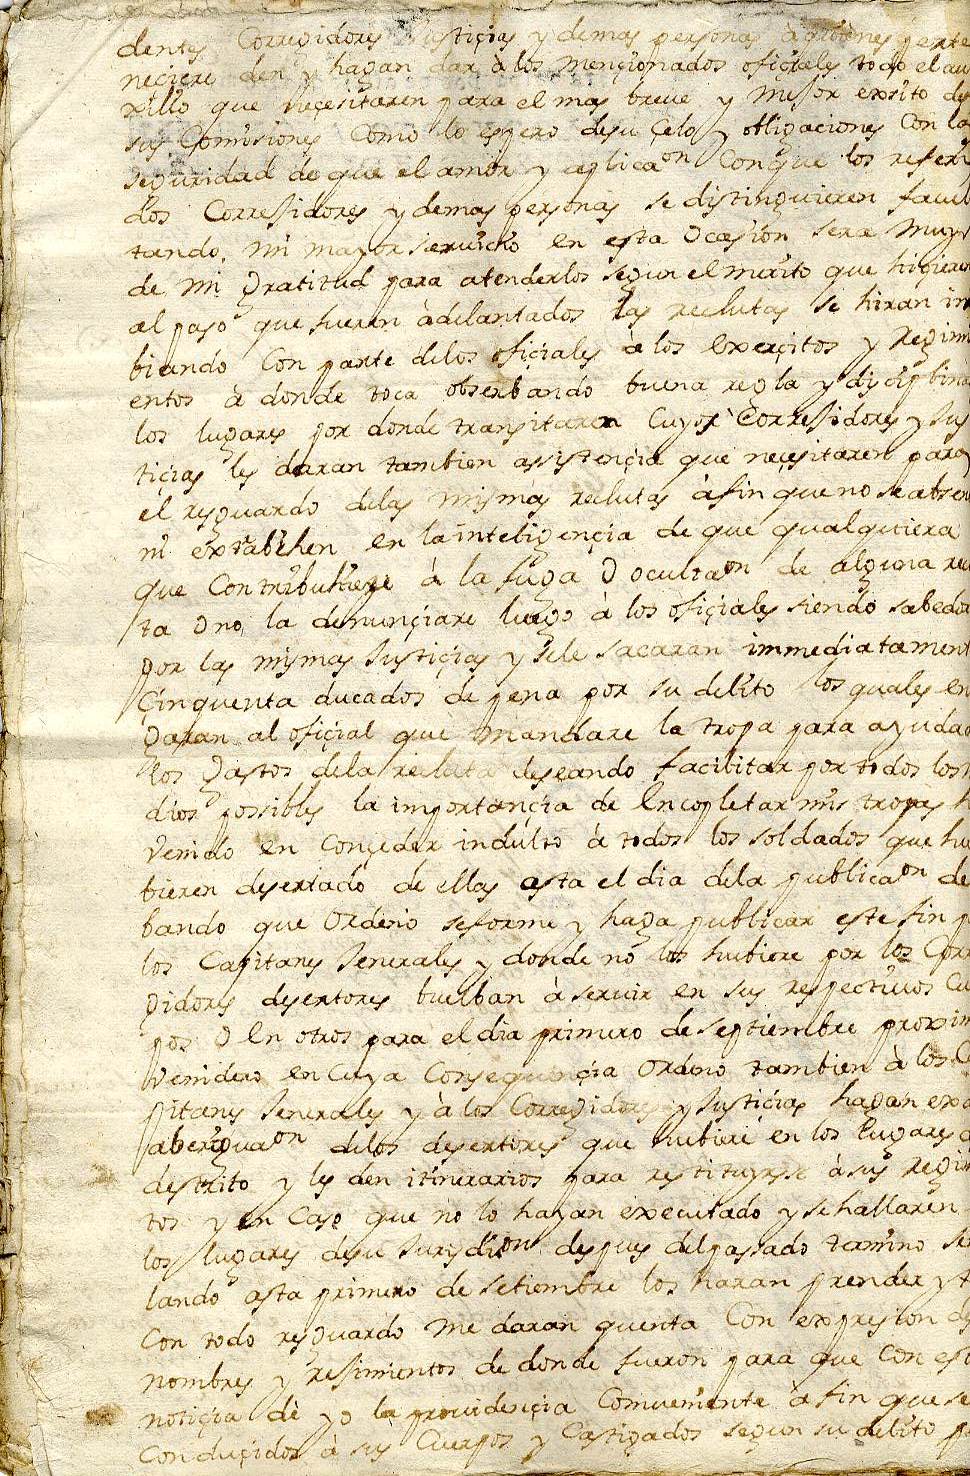 dentes Corregidores Justiçias y demas personas à quienes perte
neciere den y hagan dar à los mençionados ofiçiales todo el au
xillo que neçesitaren para el mas breve y mejor exsito de
sus Comisiones Como lo espero de su Çelo y obligaciones Con la
seguridad de que el amor y aplicaon Conque los referi
dos Corresidores y demas personas se distinguieren façili
tando mi mayor serviçio en esta Ocasion sera muy
de mi Gratitud para atenderlos segun el merito que hiçieren
al paso que fueren àdelantados las reclutas se hiran in
biando Con parte delos ofiçiales à los exerçitos y Regimi
entos à donde toca obserbando buena regla y disçiplina
los lugares por donde transitaren Cuyos Corresidores y Jus
tiçias les daran tambien assistençia que neçesitaren para
el resguardo delas mismas reclutas àfin que no se absen
ni extrabihen en la inteligençia de que qualquiera
que Contribuhiere à la fuga O ocultaon de alguna reclu
ta O no la denunçiare luego à los ofiçiales siendo sabedor
por las mismas Justiçias y sele sacaran immediatament
Çinquenta ducados de pena por su delito los quales en
Garan al ofiçial que mandare la tropa para ayudad
los Gastos dela recluta deseando facilitar por todos los
dios possibles la importançia de Encopletar mis tropas h
Venido en Conçeder indulto à todos los soldados que hu
bieren desertado de ellas asta el dia dela publicaon de
bando que Ordeno se forme y haga publicar este fin p
los Capitanes Jenerales y donde no los hubiere por los Corr
gidores desertores buelban à servir en sus respectivos Cu
pos O En otros para el dia primero de septiembre proxim
Venidero en Cuya Consequençia Ordeno tambien à los C
pitanes Jenerales y à los Corregidores y Justiçias hagan exa
aberiguaon delos desertores que hubiere en los lugares d
destrito y les den itinerarios para restituyrse à sus regim
tos y en Caso que no lo hayan executado y se hallaren
los lugares desu Jurisdion despues del passado tamino se
lando asta primero de setiembre los haran prender y t
Con todo resguardo me daran quenta Con expresion de
nombres y resimientos de donde fueron para que Con est
notiçia dè yo la providençia Comveniente à fin que se
Conduçidos à sus Cuerpos y Castigados segun su delito p